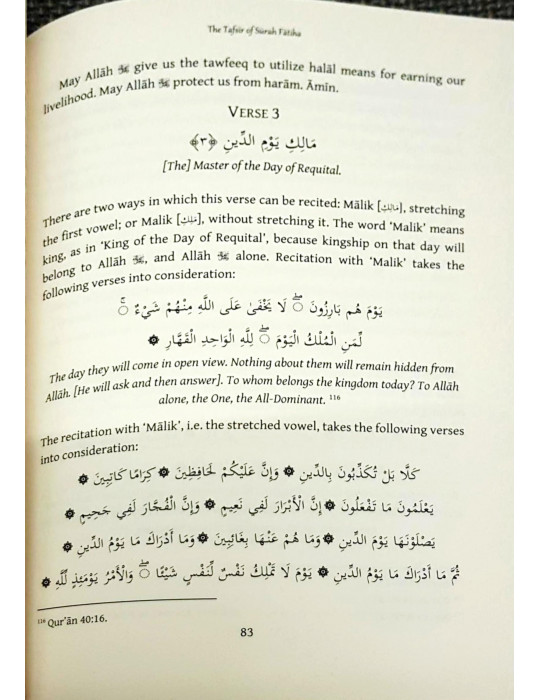 The Tafsīr of Sūrah Fātiḥa
May Allāh ﷻ give us the tawfeeq to utilize halāl means for earning our
livelihood. May Allāh ﷻ protect us from harām. Āmīn.
VERSE 3
مَالِكِ يَوْمِ الدِّينِ ﴿٣﴾
[The] Master of the Day of Requital.
There are two ways in which this verse can be recited: Mālik [مَالِكِ], stretching
the first vowel; or Malik [مَلِكِ], without stretching it. The word ‘Malik’ means
king, as in ‘King of the Day of Requital’, because kingship on that day will
belong to Allāh ﷻ, and Allāh ﷻ alone. Recitation with ‘Malik’ takes the
following verses into consideration:
يَوْمَ هُم بَارِزُونَ ۖ لَا يَخْفَىٰ عَلَى اللَّهِ مِنْهُمْ شَيْءٌ ۚ
لِّمَنِ الْمُلْكُ الْيَوْمَ ۖ لِلَّهِ الْوَاحِدِ الْقَهَّارِ ۞
The day they will come in open view. Nothing about them will remain hidden from
Allāh. [He will ask and then answer]. To whom belongs the kingdom today? To Allāh
alone, the One, the All-Dominant. 116
The recitation with ‘Mālik’, i.e. the stretched vowel, takes the following verses
into consideration:
كَلَّا بَلْ تُكَذِّبُونَ بِالدِّينِ ۞ وَإِنَّ عَلَيْكُمْ لَحَافِظِينَ ۞ كِرَامًا كَاتِبِينَ ۞
يَعْلَمُونَ مَا تَفْعَلُونَ ۞ إِنَّ الْأَبْرَارَ لَفِي نَعِيمٍ ۞ وَإِنَّ الْفُجَّارَ لَفِي جَحِيمٍ ۞
يَصْلَوْنَهَا يَوْمَ الدِّينِ ۞ وَمَا هُمْ عَنْهَا بِغَائِبِينَ ۞ وَمَا أَدْرَاكَ مَا يَوْمُ الدِّينِ ۞
ثُمَّ مَا أَدْرَاكَ مَا يَوْمُ الدِّينِ ۞ يَوْمَ لَا تَمْلِكُ نَفْسٌ لِّنَفْسٍ شَيْئًا ۖ وَالْأَمْرُ يَوْمَئِذٍ لِّلَّهِ ۞
116 Qur’ān 40:16.
83